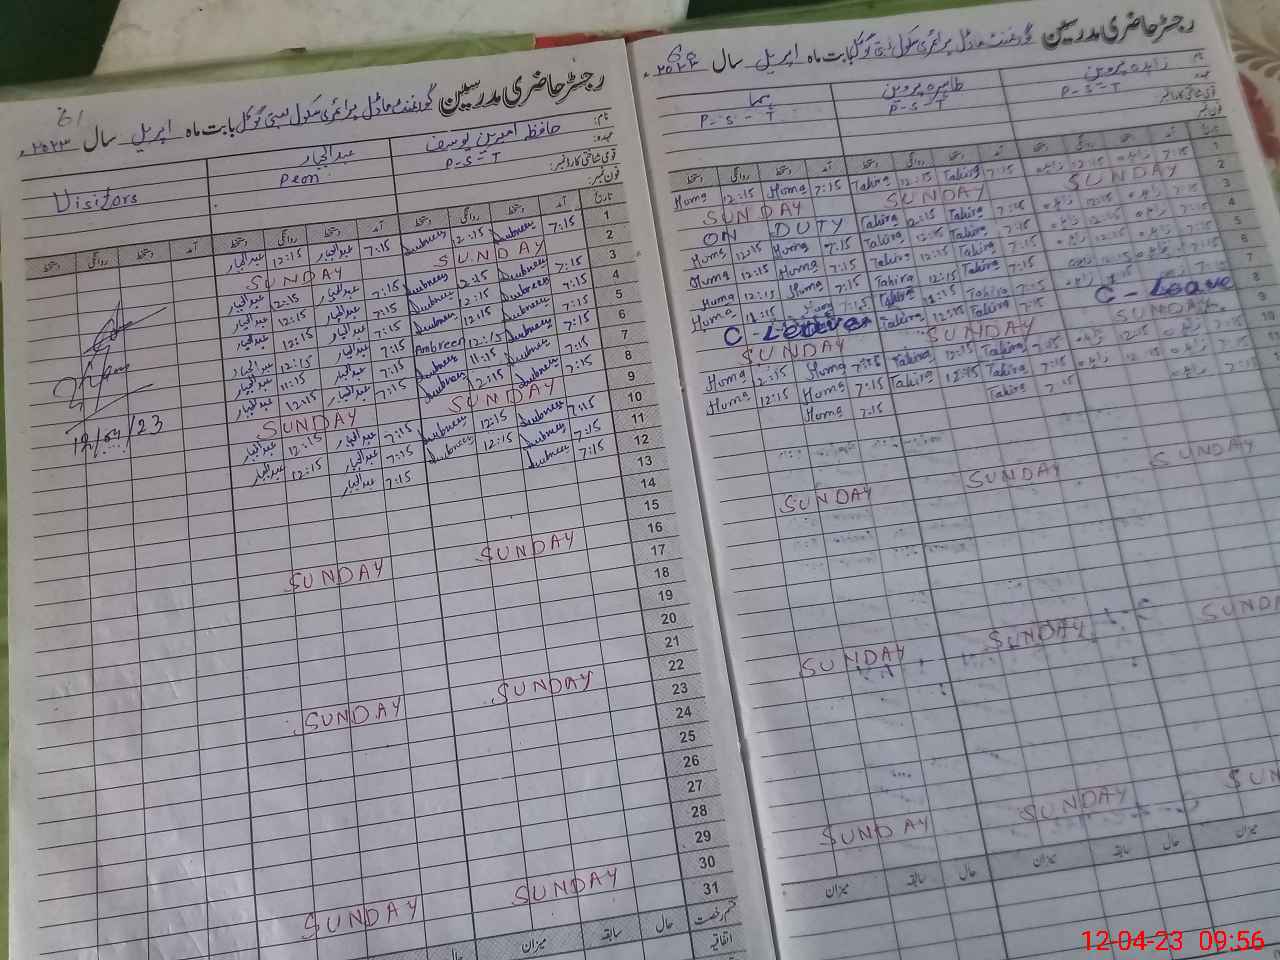 رجسٹر حاضری مدرسین گورنمنٹ ماڈل پرائمری سکول بستی گوگل بابت ماہ اپریل سال ۲۰۲۳ء
61
نام: حافظ امبرین یوسف عبدالجبار Visitors
عہدہ: P-S-T Peon
قومی شناختی کارڈ نمبر:
فون نمبر:
تاریخ آمد دستخط روانگی دستخط آمد دستخط روانگی دستخط آمد دستخط روانگی دستخط
1 7:15 12:15 7:15 عبدالجبار 12:15 عبدالجبار
2 SUNDAY SUNDAY
3 7:15 12:15 7:15 عبدالجبار 12:15 عبدالجبار
4 7:15 12:15 7:15 عبدالجبار 12:15 عبدالجبار
5 7:15 12:15 7:15 عبدالجبار 12:15 عبدالجبار
6 7:15 12:15 Ambreen 7:15 عبدالجبار 12:15 عبدالجبار
7 7:15 11:15 7:15 عبدالجبار 11:15 عبدالجبار
8 7:15 12:15 7:15 عبدالجبار 12:15 عبدالجبار
9 SUNDAY SUNDAY
10 7:15 12:15 7:15 عبدالجبار 12:15 عبدالجبار
11 7:15 12:15 7:15 عبدالجبار 12:15 عبدالجبار
12 7:15 7:15 عبدالجبار
12/04/23
13
14
15
16 SUNDAY SUNDAY
17
18
19
20
21
22
23 SUNDAY SUNDAY
24
25
26
27
28
29
30 SUNDAY SUNDAY
31
قسم رخصت حال سابقہ میزان حال
اتفاقیہ
رجسٹر حاضری مدرسین گورنمنٹ ماڈل پرائمری سکول بستی گوگل بابت ماہ اپریل سال ۲۰۲۳ء
60
زاہدہ پروین طاہرہ پروین ہما
P-S-T P-S-T P-S-T
تاریخ آمد دستخط روانگی دستخط آمد دستخط روانگی دستخط آمد دستخط روانگی دستخط
1 7:15 زاہدہ 12:15 زاہدہ 7:15 Tahira 12:15 Tahira 7:15 Homa 12:15 Homa
2 SUNDAY SUNDAY SUNDAY
3 7:15 زاہدہ 12:15 زاہدہ 7:15 Tahira 12:15 Tahira ON DUTY
4 7:15 زاہدہ 12:15 زاہدہ 7:15 Tahira 12:15 Tahira 7:15 Homa 12:15 Homa
5 7:15 زاہدہ 12:15 زاہدہ 7:15 Tahira 12:15 Tahira 7:15 Homa 12:15 Homa
6 7:15 زاہدہ 12:15 زاہدہ 7:15 Tahira 12:15 Tahira 7:15 Homa 12:15 Homa
7 7:15 Tahira Tahira 7:15 Homa
8 C - Leave 7:15 Tahira 12:15 Tahira C - Leave
9 SUNDAY SUNDAY SUNDAY
10 7:15 زاہدہ 12:15 زاہدہ 7:15 Tahira 12:15 Tahira 7:15 Homa 12:15 Homa
7:15 زاہدہ 12:15 زاہدہ 7:15 Tahira 12:15 Tahira 7:15 Homa 12:15 Homa
7:15 زاہدہ 7:15 Tahira 7:15 Homa
SUNDAY SUNDAY SUNDAY
SUNDAY SUNDAY SUNDAY
SUNDAY SUNDAY
میزان حال سابقہ میزان حال سابقہ میزان
12-04-23 09:56